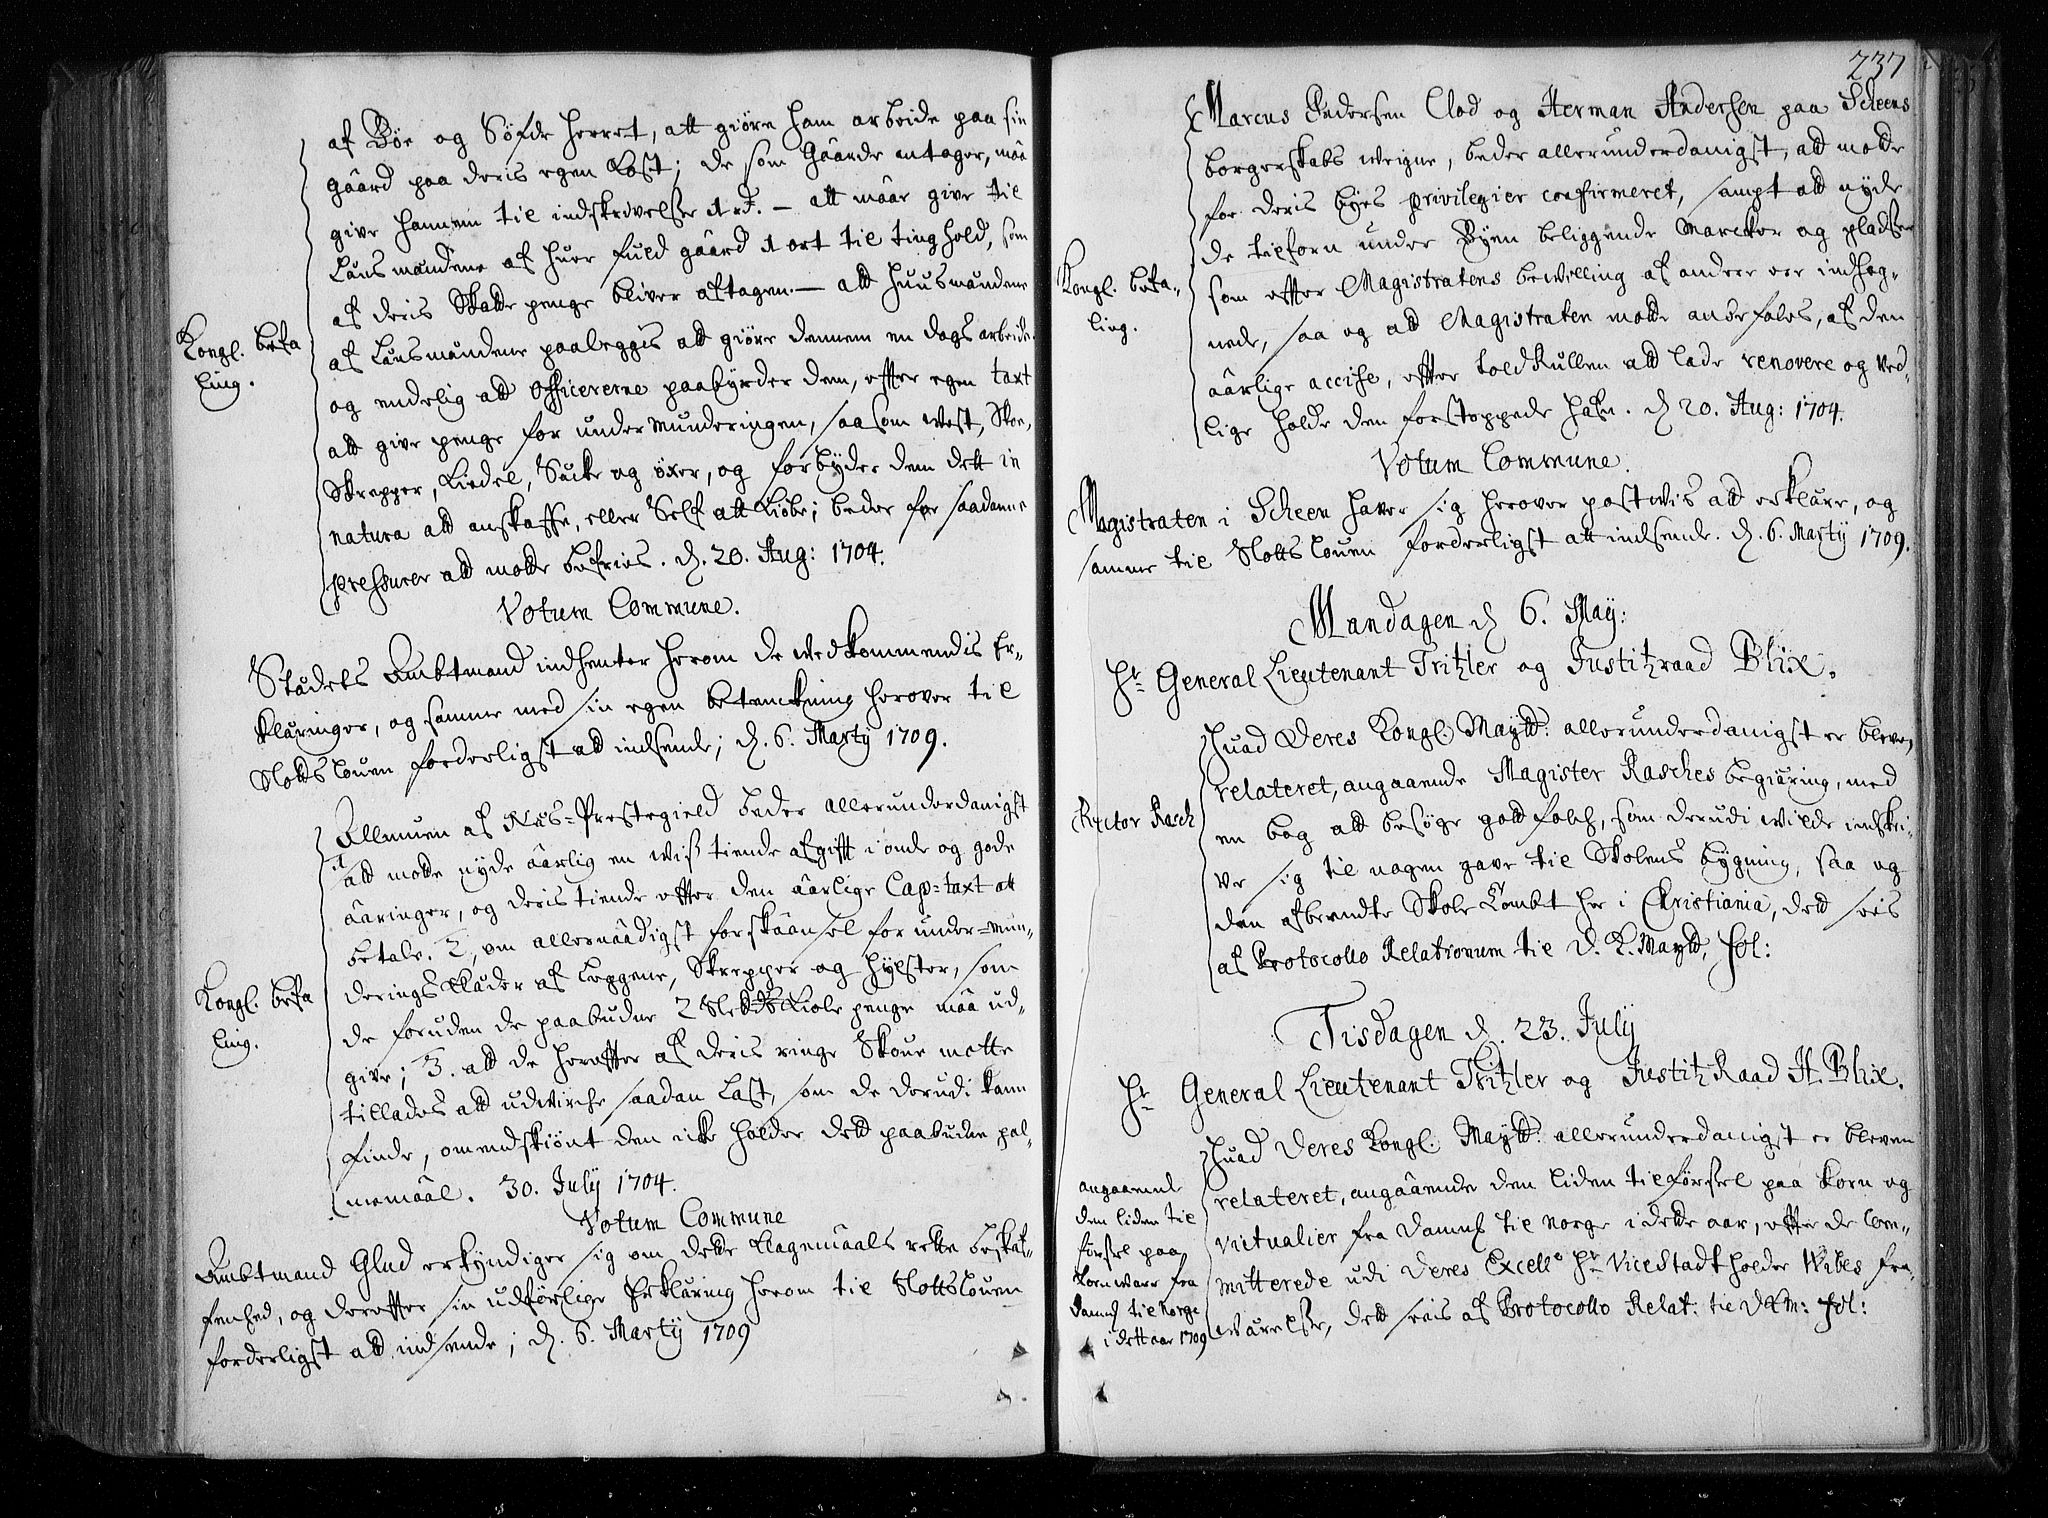 af Bøe og Søfde Herret, att giøre ham arbeide paa sin
Gaard paa deris egen Kost; de som Gaarde antager, maa
give hannem til indskrivelse 1 rd. – att maae give til
Lænsmændene af huer fuld gaard 1 ort til tinghold, som
af deris Skatte penge bliver aftagen. – att Huusmændene
af Lænsmændene paaleggis att giøre dennem en dags arbeide.
og endelig att Officererne paabyrder dem, efter egen taxt
att give penge for under munderingen, saasom west, Skoe,
Skrepper, Kiedel, Sæcke og øxer, og forbyder dem dett in
natura att anskaffe, eller Self att Kiøbe; beder for saadanne
pressurer att motte befries. d. 20. Aug: 1704.
Kongl. befa
ling.
Votum Commune.
Stædets Ambtmand indhenter herom de vedkommendis Er-
klæringer, og samme med sin egen betenckning herover til
Slottsloven forderligst att indsende; d. 6. Marty 1709.
Allmuen af Næs-Prestegield beder allerunderdanigst
1 att motte nyde aarlig en wiss tiende afgifft i onde og gode
aaringer, og deris tiende efter den aarlige Cap-taxt att
betale. 2, om allernaadigst forskaansel for under-mun-
derings Klæder af Leggene, Skrepper og Hylster, som
de foruden de paabudne 2 Slette Kiole penge maa ud-
give; 3. att de herefter af deris ringe Skoue motte
tillades att udvirche saadan Last, som de derudi kann
finde, omendskiønt den icke holder dett paabudne pal-
memaal. 30. July 1704.
Kongl. befa
ling.
Votum Commune
Ambtmand Glud erkyndiger sig om dette Klagemaals rette beskaf-
fenhed, og derefter sin udførlige Erklæring herom til Slottsloven
forderligst att indsende; d. 6. Marty 1709
237
Marcus Pedersen Clod og Herman Andersen paa Scheens
borgerskabs weigne, beder allerunderdanigst, att motte
faa deris byes privilegier confirmeret, sampt att nyde
de tilforn under Byen beliggende Marcker og pladser
som efter Magistratens bewilling af andere ere indheg-
nede, saa og att Magistraten motte anbefales, af den
aarlige accise, efter toldRullen att lade renovere og ved-
lige holde den forstoppede hafn. d 20. Aug: 1704.
Kongl. befa-
ling.
Votum Commune.
Magistraten i Scheen haver sig herover postvis att erklære, og
samme til Slottslouen forderligst att indsende. d. 6. Marty 1709.
Mandagen d 6. May:
Hr General Lieutenant Tritzler og Justitzraad Blix.
Huad Deres Kongl. Maytt: allerunderdanigst er bleven
relateret, angaaende Magister Rasches begiæring, med
en bog att besøge gott folch, som derudi wilde indskri-
ve sig til nogen gave til Skolens bygning, saa og
den afbrendte Skole Tombt her i Christiania, dett sees
af Protocollo Relationum til D. K. Maytt, fol:
Rector Rasch
Tisdagen d. 23. July
Hr General Lieutenant Tritzler og Justitz Raad H. Blix.
Huad Deres Kongl. Maytt: allerunderdanigst er bleven
relateret, angaaende den liden tilførsel paa Korn og
Victualier fra Danmk til Norge i dette aar, efter de Com-
mitterede udi Deres Excell. Hr ViceStadtholder Wibes fra-
værelse, dett sees af Protocollo Relat: til DKM: fol:
angaaende
den liden til
førsel paa
Korn vare fra
Danmk til Norge
i dett aar 1709